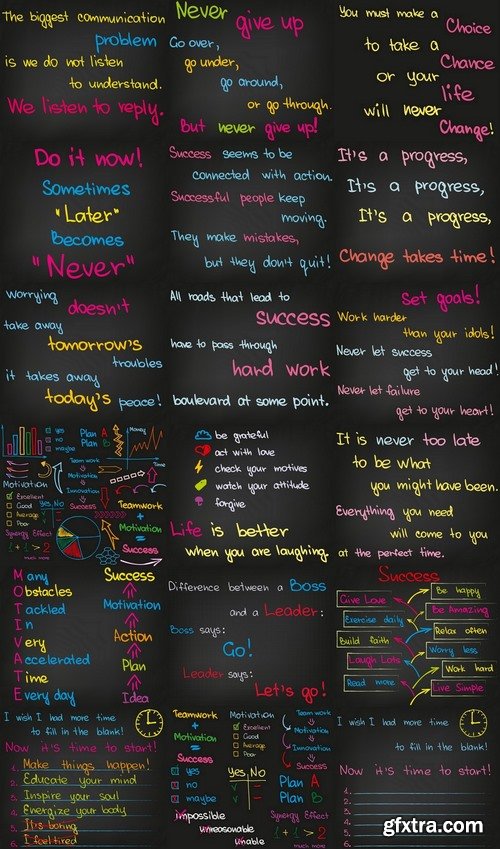 The biggest communication
problem
is we do not listen
to understand.
We listen to reply.
Never
give up
Go over,
go under,
go around,
or go through.
But never give up!
You must make a
Choice
to take a
Chance
or your
life
will never
Change!
Do it now!
Sometimes
"Later"
Becomes
"Never"
Success seems to be
connected with action.
Successful people keep
moving.
They make mistakes,
but they don't quit!
It's a progress,
It's a progress,
It's a progress,
Change takes time!
Worrying
doesn't
take away
tomorrow's
troubles
it takes away
today's peace!
All roads that lead to
success
have to pass through
hard work
boulevard at some point.
Set goals!
Work harder
than your idols!
Never let success
get to your head!
Never let failure
get to your heart!
yes
no
maybe
Plan A
Plan B
Money
Time
Motivation
Excellent
Good
Average
Poor
Yes No
Team work
Motivation
Innovation
Success
Teamwork
+
Motivation
=
Success
Synergy Effect
1+1>2
much more
be grateful
act with love
check your motives
watch your attitude
forgive
Life is better
when you are laughing.
It is never too late
to be what
you might have been.
Everything you need
will come to you
at the perfect time.
Many
Obstacles
Tackled
In
Very
Accelerated
Time
Every day
Success
Motivation
Action
Plan
Idea
Difference between a Boss
and a Leader:
Boss says:
Go!
Leader says:
Let's go!
Success
Give Love
Be happy
Exercise daily
Be Amazing
Build faith
Relax often
Laugh Lots
Worry less
Read more
Work hard
Live Simple
I wish I had more time
to fill in the blank!
Now it's time to start!
1. Make things happen!
2. Educate your mind
3. Inspire your soul
4. Energize your body
5. It's boring
6. I feel tired
Teamwork
+
Motivation
=
Success
yes
no
maybe
Motivation
Excellent
Good
Average
Poor
Yes No
Team work
Motivation
Innovation
Success
Plan A
Plan B
impossible
unreasonable
unable
Synergy Effect
1+1>2
much more
I wish I had more time
to fill in the blank!
Now it's time to start!
1.
2.
3.
4.
5.
6.
gfxtra.com